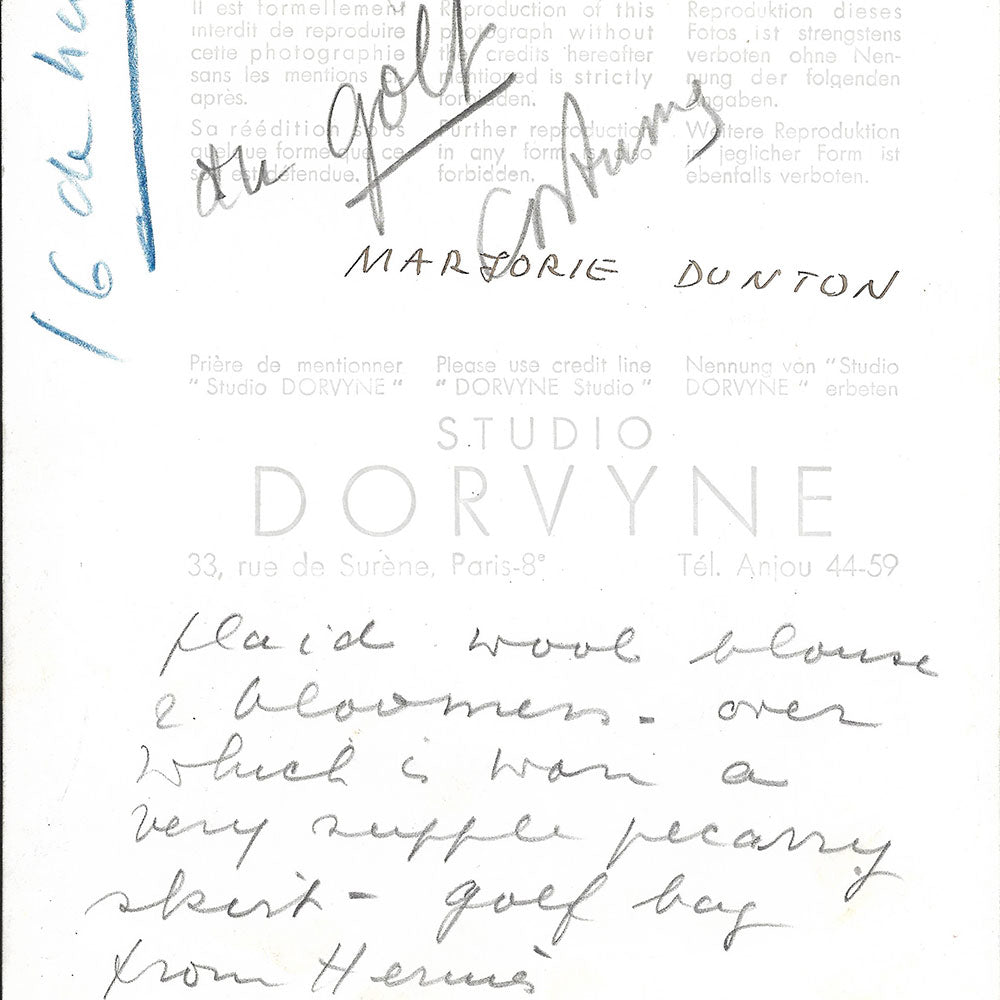 Il est formellement
interdit de reproduire
cette photographie
sans les mentions ci-
après.
Sa réédition sous
quelque forme que ce
soit est défendue.
Reproduction of this
photograph without
the credits hereafter
mentioned is strictly
forbidden.
Further reproduction
in any form also
forbidden.
Reproduktion dieses
Fotos ist strengstens
verboten ohne Nen-
nung der folgenden
Angaben.
Weitere Reproduktion
in jeglicher Form ist
ebenfalls verboten.
16 de
golf
Costume
MARJORIE DUNTON
Prière de mentionner
" Studio DORVYNE "
Please use credit line
" DORVYNE Studio "
Nennung von "Studio
DORVYNE " erbeten
STUDIO
DORVYNE
33, rue de Surène, Paris-8e
Tél. Anjou 44-59
plaid wool blouse
& bloomers - over
which is worn a
very supple pecarry
skirt - golf bag
from Hermès